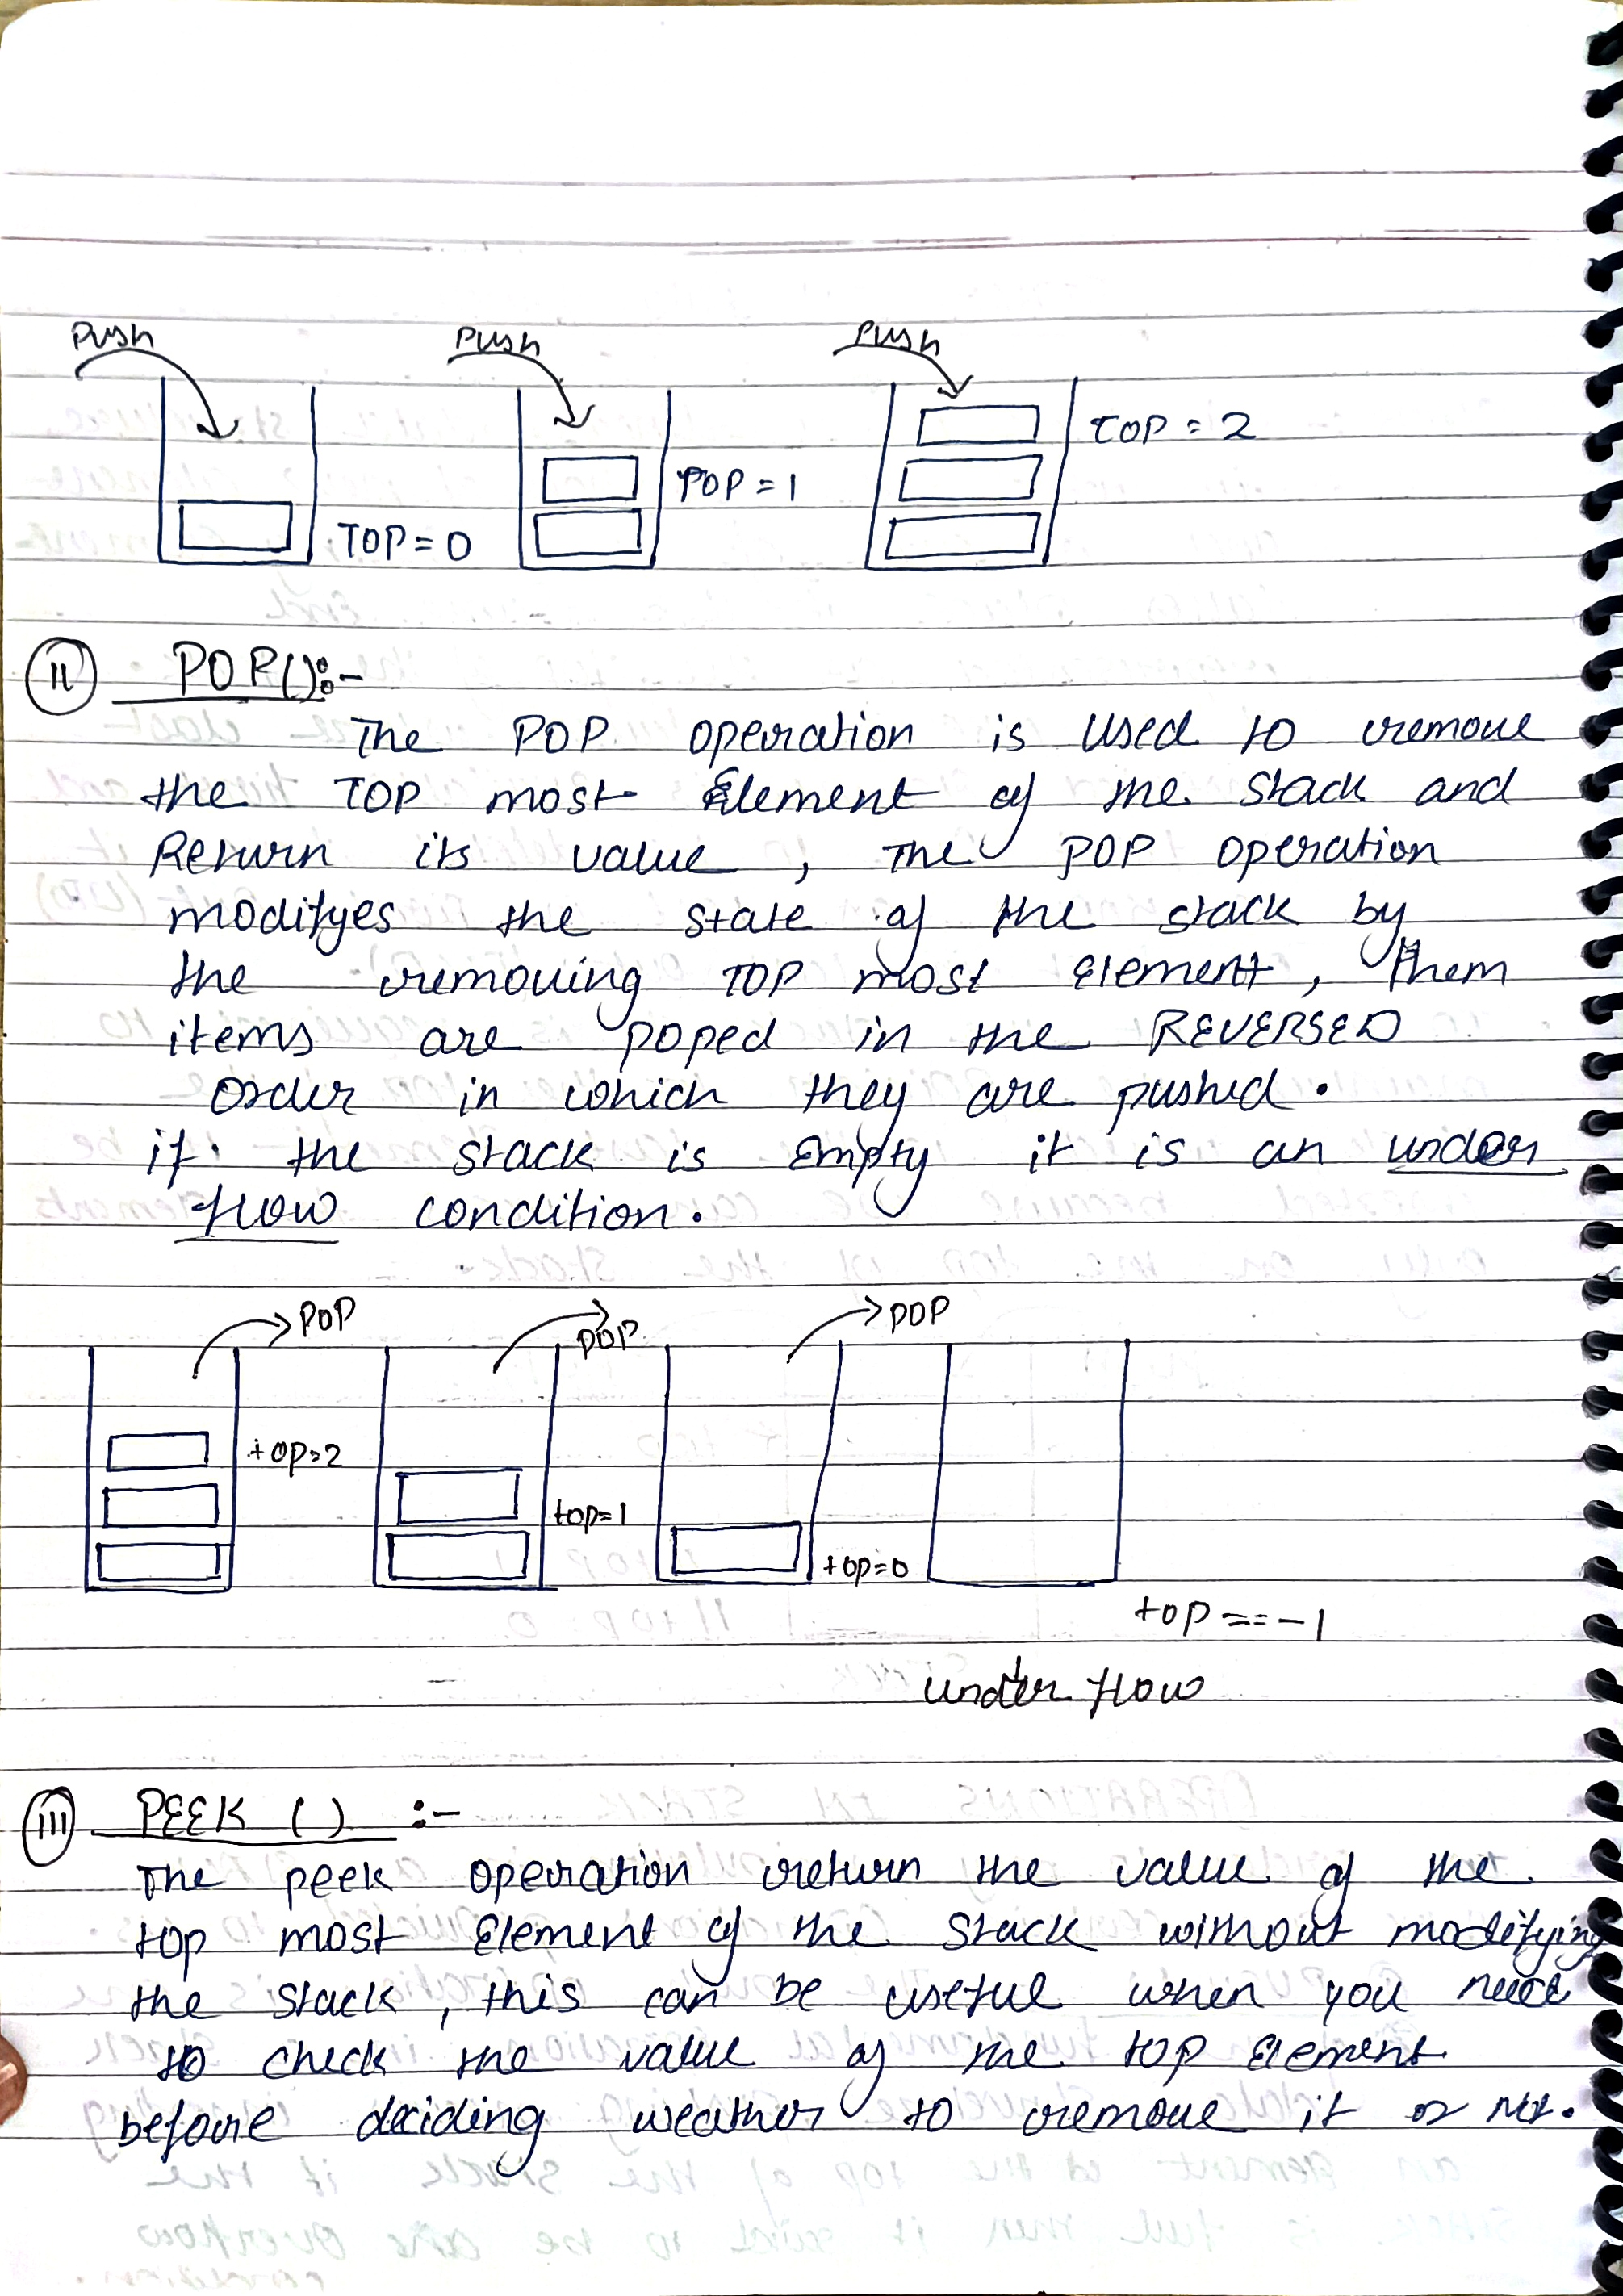 Push Push Push
TOP = 2
POP = 1
TOP = 0
(ii) POP():-
The POP operation is Used to remove
the TOP most Element of the Stack and
Return its value , The POP operation
modifyes the state of the stack by
the removing TOP most element, them
items are poped in the REVERSED
Order in which they are pushed.
if the stack is Empty it is an under
flow condition.
POP POP POP
top=2
top=1
top=0
top == -1
under flow
(iii) PEEK () :-
The peek operation return the value of the
top most Element of the Stack without modifying
the stack , this can be useful when you need
to check the value of the top Element
before deciding weather to remove it or not.